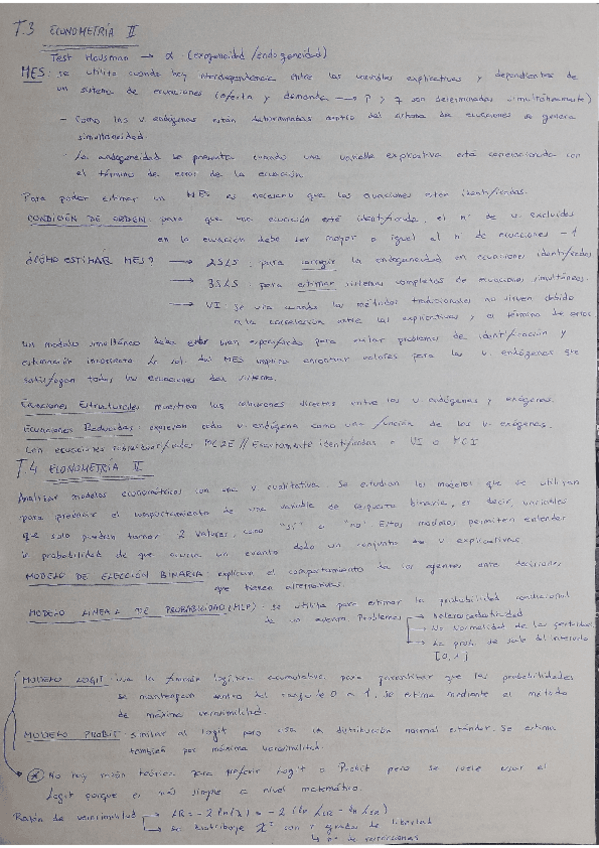 T.3 ECONOMETRÍA II
Test Hausman → α (exogeneidad/endogeneidad)
MES: se utiliza cuando hay interdependencia entre las variables explicativas y dependientes de
un sistema de ecuaciones (oferta y demanda → P y q son determinadas simultáneamente)
- Como las v endógenas están determinadas dentro del sistema de ecuaciones se genera
simultaneidad.
- La endogeneidad se presenta cuando una variable explicativa está correlacionada con
el término de error de la ecuación
Para poder estimar un MES es necesario que las ecuaciones estén identificadas.
CONDICIÓN DE ORDEN: para que una ecuación esté identificada, el nº de v. excluidas
en la ecuación debe ser mayor o igual al nº de ecuaciones - 1
¿CÓMO ESTIMAR MES? → 2SLS: para corregir la endogeneidad en ecuaciones identificadas
→ 3SLS: para estimar sistemas completos de ecuaciones simultáneas.
→ VI: se usa cuando los métodos tradicionales no sirven debido
a la correlación entre las explicativas y el término de error
Un modelo simultáneo debe estar bien especificado para evitar problemas de identificación y
estimación incorrecta. La sol. del MES requiere encontrar valores para las v. endógenas que
satisfagan todas las ecuaciones del sistema.
Ecuaciones Estructurales: muestran las relaciones directas entre las v endógenas y exógenas.
Ecuaciones Reducidas: expresan cada v. endógena como una función de las v. exógenas.
Las ecuaciones sobreidentificadas MC2E // Exactamente identificadas = VI o MCI
T.4 ECONOMETRÍA II
Analizar modelos econométricos con una v cualitativa. Se estudian los modelos que se utilizan
para predecir el comportamiento de una variable de respuesta binaria, es decir, variables
que solo pueden tomar 2 valores, como "sí" o "no". Estos modelos permiten entender
la probabilidad de que ocurra un evento dado un conjunto de v explicativas.
MODELO DE ELECCIÓN BINARIA: explican el comportamiento de los agentes ante decisiones
que tienen alternativas.
MODELO LINEAL DE PROBABILIDAD (MLP): se utiliza para estimar la probabilidad condicional
de un evento. Problemas → heterocedasticidad
→ No normalidad de las perturbac.
→ La prob. se sale del intervalo
[0,1]
MODELO LOGIT: usa la función logística acumulativa, para garantizar que las probabilidades
se mantengan dentro del rango de 0 a 1. Se estima mediante el método
de máxima verosimilitud.
MODELO PROBIT: similar al logit pero usa la distribución normal estándar. Se estima
también por máxima verosimilitud.
* No hay razón teórica para preferir Logit o Probit pero se suele usar el
Logit porque es más simple a nivel matemático.
Razón de verosimilitud → LR = -2 ln(λ) = -2 (ln L
→ se distribuye χ² con r grados de libertad
↳ nº de restricciones